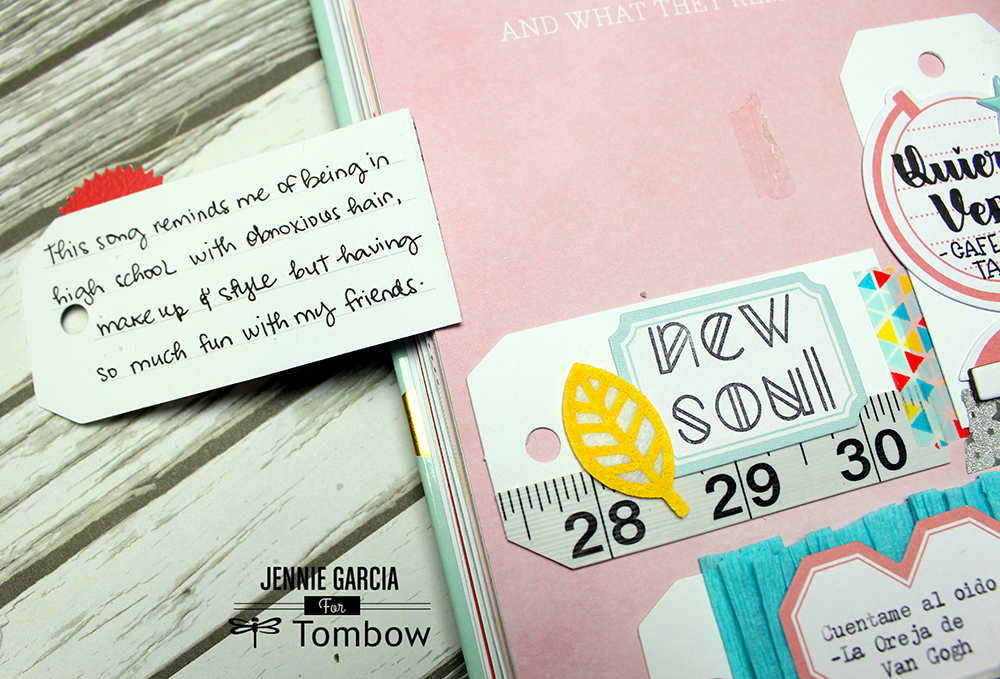 AND WHAT THEY
This song reminds me of being in
high school with obnoxious hair,
make up & style but having
so much fun with my friends.
new
soul
28 29 30
-CAFE
Cuentame al oido
-La Oreja de
Van Gogh
JENNIE GARCIA
For
Tombow